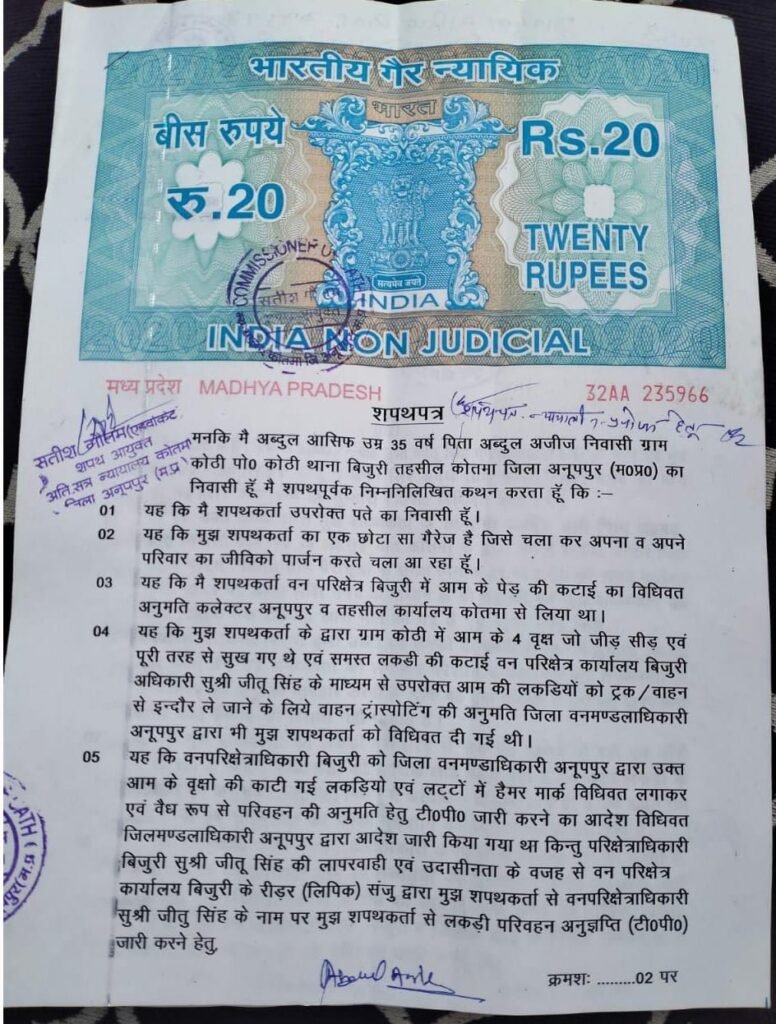 भारतीय गैर न्यायिक
भारत
बीस रुपये
रु.20
Rs.20
TWENTY
RUPEES
सत्यमेव जयते
INDIA
COMMISSIONER OF OATH
INDIA NON JUDICIAL
मध्य प्रदेश MADHYA PRADESH 32AA 235966
शपथपत्र
सतीश गौतम (एडवोकेट
शपथ आयुक्त
अति.सत्र न्यायालय कोतमा
जिला अनूपपुर (म.प्र
मनकि मै अब्दुल आसिफ उम्र 35 वर्ष पिता अब्दुल अजीज निवासी ग्राम
कोठी पो0 कोठी थाना बिजुरी तहसील कोतमा जिला अनूपपुर (म0प्र0) का
निवासी हूॅ मै शपथपूर्वक निम्ननिलिखित कथन करता हूॅ कि :–
01 यह कि मै शपथकर्ता उपरोक्त पते का निवासी हूॅ।
02 यह कि मुझ शपथकर्ता का एक छोटा सा गैरेज है जिसे चला कर अपना व अपने
परिवार का जीविको पार्जन करते चला आ रहा हूॅ।
03 यह कि मै शपथकर्ता वन परिक्षेत्र बिजुरी में आम के पेड़ की कटाई का विधिवत
अनुमति कलेक्टर अनूपपुर व तहसील कार्यालय कोतमा से लिया था।
04 यह कि मुझ शपथकर्ता के द्वारा ग्राम कोठी में आम के 4 वृक्ष जो जीड़ सीड़ एवं
पूरी तरह से सुख गए थे एवं समस्त लकडी की कटाई वन परिक्षेत्र कार्यालय बिजुरी
अधिकारी सुश्री जीतू सिंह के माध्यम से उपरोक्त आम की लकडियों को ट्रक/वाहन
से इन्दौर ले जाने के लिये वाहन ट्रांस्पोटिंग की अनुमति जिला वनमण्डलाधिकारी
अनूपपुर द्वारा भी मुझ शपथकर्ता को विधिवत दी गई थी।
05 यह कि वनपरिक्षेत्राधिकारी बिजुरी को जिला वनमण्डाधिकारी अनूपपुर द्वारा उक्त
आम के वृक्षो की काटी गई लकड़ियो एवं लट्टों में हैमर मार्क विधिवत लगाकर
एवं वैध रूप से परिवहन की अनुमति हेतु टी0पी0 जारी करने का आदेश विधिवत
जिलमण्डलाधिकारी अनूपपुर द्वारा आदेश जारी किया गया था किन्तु परिक्षेत्राधिकारी
बिजुरी सुश्री जीतू सिंह की लापरवाही एवं उदासीनता के वजह से वन परिक्षेत्र
कार्यालय बिजुरी के रीडर (लिपिक) संजु द्वारा मुझ शपथकर्ता से वनपरिक्षेत्राधिकारी
सुश्री जीतु सिंह के नाम पर मुझ शपथकर्ता से लकड़ी परिवहन अनुज्ञप्ति (टी0पी0)
जारी करने हेतु,
क्रमशः .........02 पर